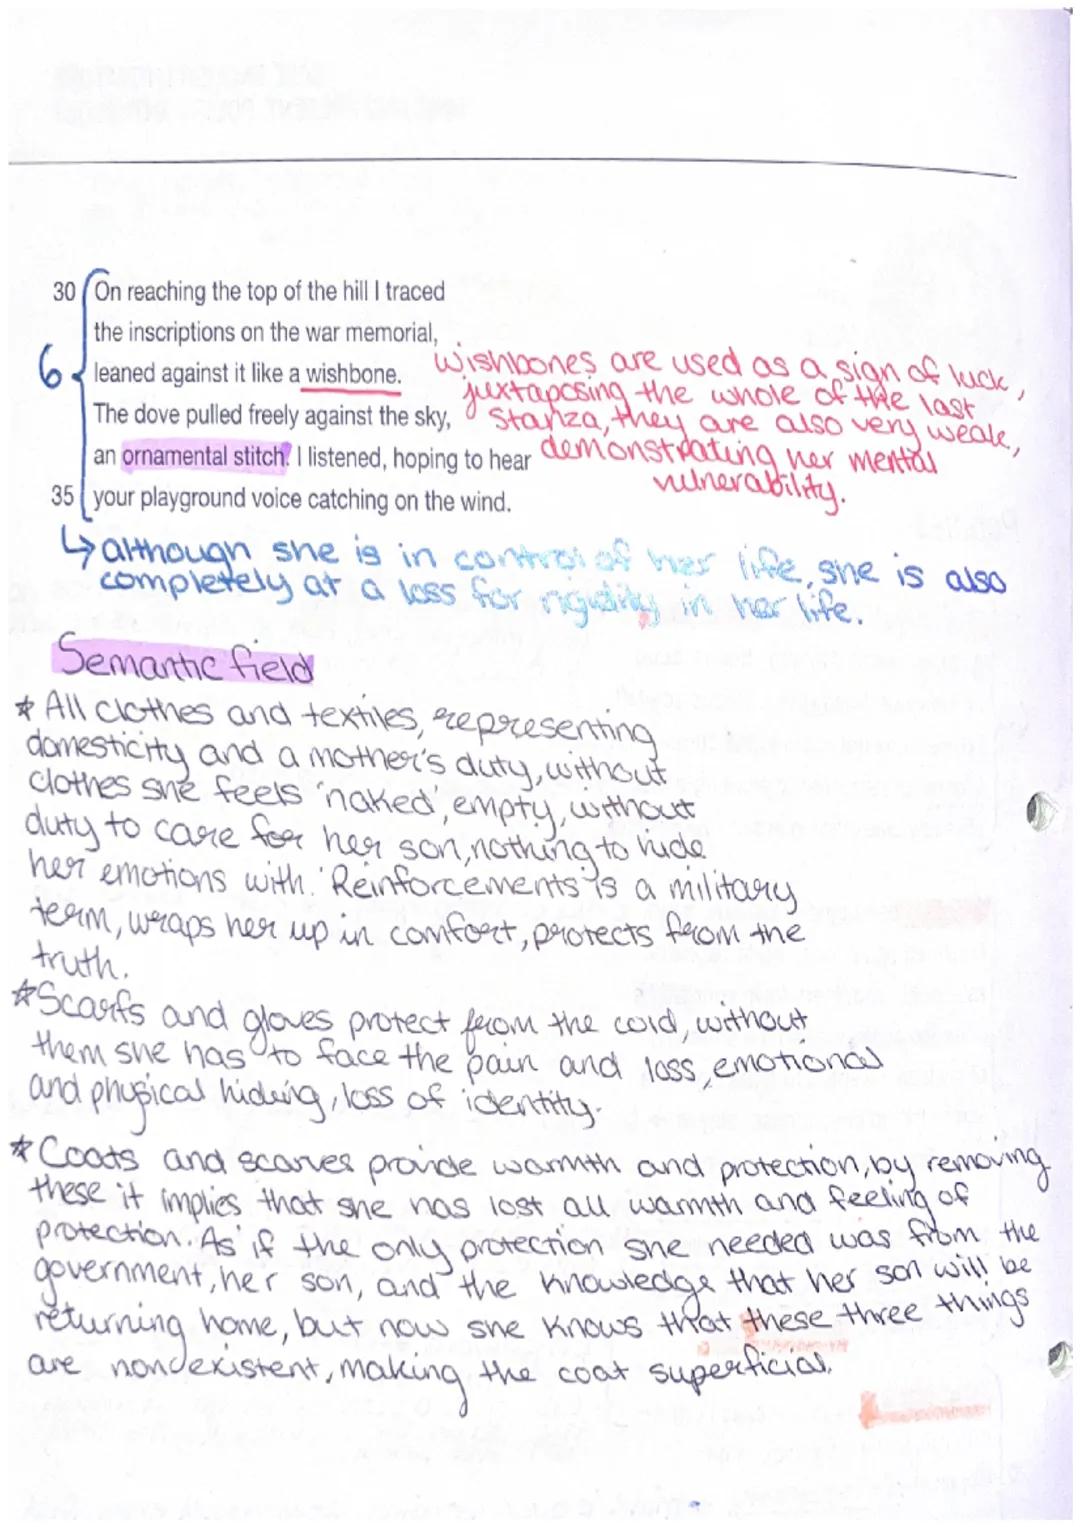 30 On reaching the top of the hill I traced
the inscriptions on the war memorial,
6 leaned against it like a wishbone.
The dove pulled freely against the sky,
an ornamental stitch. I listened, hoping to hear
35 your playground voice catching on the wind.
wishbones are used as a sign of luck,
juxtaposing the whole of the last
stanza, they are also very weak,
demonstrating her mental
vulnerability.
↳ although she is in control of her life, she is also
completely at a loss for rigidity in her life.
Semantic field
* All clothes and textiles, representing
domesticity and a mother's duty, without
clothes she feels 'naked', empty, without
duty to care for her son, nothing to hide
her emotions with. 'Reinforcements' is a military
term, wraps her up in comfort, protects from the
truth.
* Scarfs and gloves protect from the cold, without
them she has to face the pain and loss, emotional
and physical hiding, loss of identity.
* Coats and scarves provide warmth and protection, by removing
these it implies that she has lost all warmth and feeling of
protection. As if the only protection she needed was from the
government, her son, and the knowledge that her son will be
returning home, but now she knows that these three things
are non-existent, making the coat superficial.